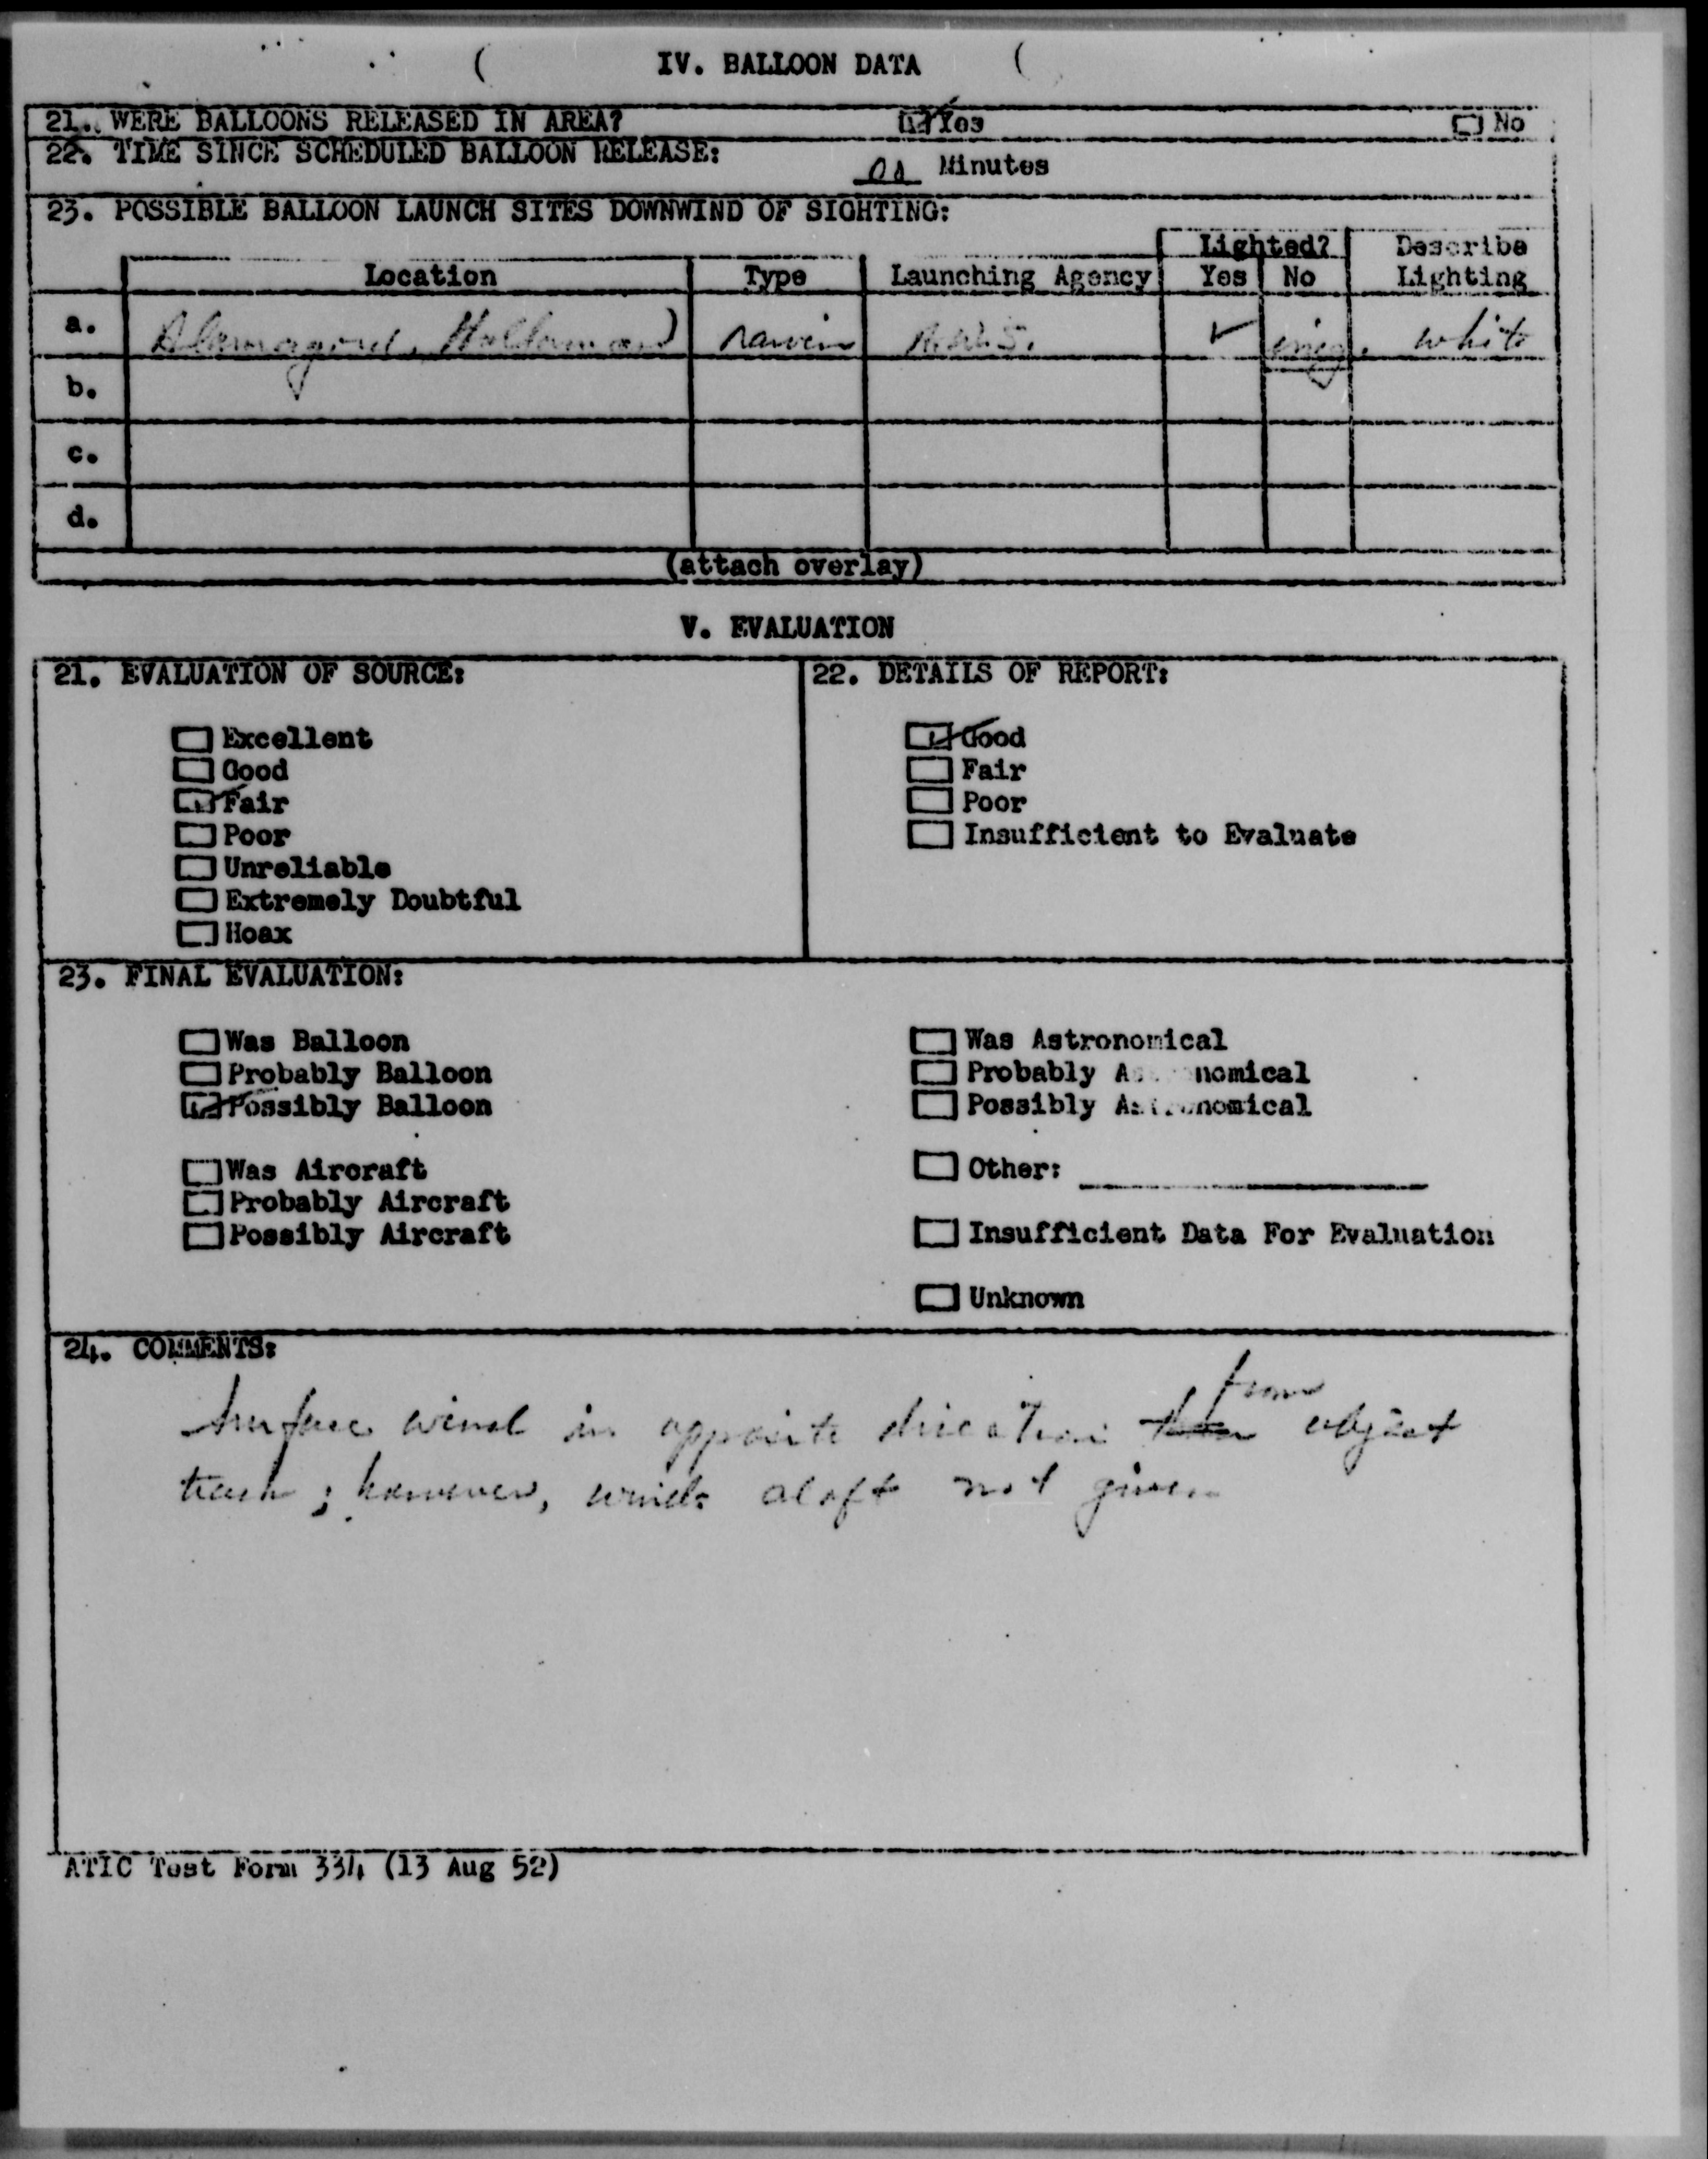 IV. BALLOON DATA
21. WERE BALLOONS RELEASED IN AREA? Yes No
22. TIME SINCE SCHEDULED BALLOON RELEASE: Minutes
23. POSSIBLE BALLOON LAUNCH SITES DOWNWIND OF SIGHTING:
Lighted? Describe
Location Type Launching Agency Yes No Lighting
a. rawin ✓ white
b.
c.
d.
(attach overlay)
V. EVALUATION
21. EVALUATION OF SOURCE:
Excellent
Good
Fair
Poor
Unreliable
Extremely Doubtful
Hoax
22. DETAILS OF REPORT:
Good
Fair
Poor
Insufficient to Evaluate
23. FINAL EVALUATION:
Was Balloon
Probably Balloon
Possibly Balloon
Was Aircraft
Probably Aircraft
Possibly Aircraft
Was Astronomical
Probably Astronomical
Possibly Astronomical
Other:
Insufficient Data For Evaluation
Unknown
24. COMMENTS:
from
Surface wind in opposite direction than object
track; however, winds aloft not given
ATIC Test Form 334 (13 Aug 52)